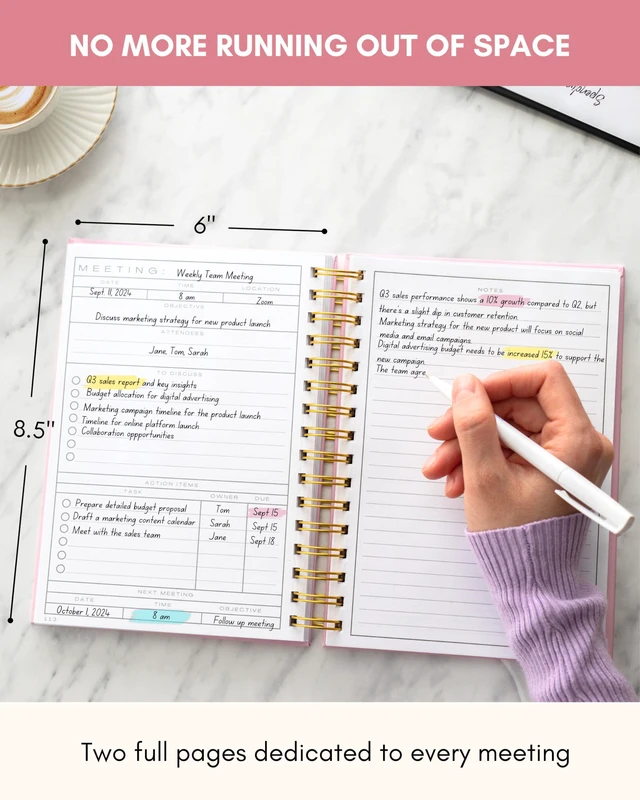 NO MORE RUNNING OUT OF SPACE
6"
8.5"
MEETING: Weekly Team Meeting
DATE TIME LOCATION
Sept 11, 2024 8 am Zoom
OBJECTIVE
Discuss marketing strategy for new product launch
ATTENDEES
Jane, Tom, Sarah
TO DISCUSS
Q3 sales report and key insights
Budget allocation for digital advertising
Marketing campaign timeline for the product launch
Timeline for online platform launch
Collaboration oppportunities
ACTION ITEMS
TASK OWNER DUE
Prepare detailed budget proposal Tom Sept 15
Draft a marketing content calendar Sarah Sept 15
Meet with the sales team Jane Sept 18
NEXT MEETING
DATE TIME OBJECTIVE
October 1, 2024 8 am Follow up meeting
113
NOTES
Q3 sales performance shows a 10% growth compared to Q2, but
there's a slight dip in customer retention.
Marketing strategy for the new product will focus on social
media and email campaigns.
Digital advertising budget needs to be increased 15% to support the
new campaign.
The team agre
Two full pages dedicated to every meeting